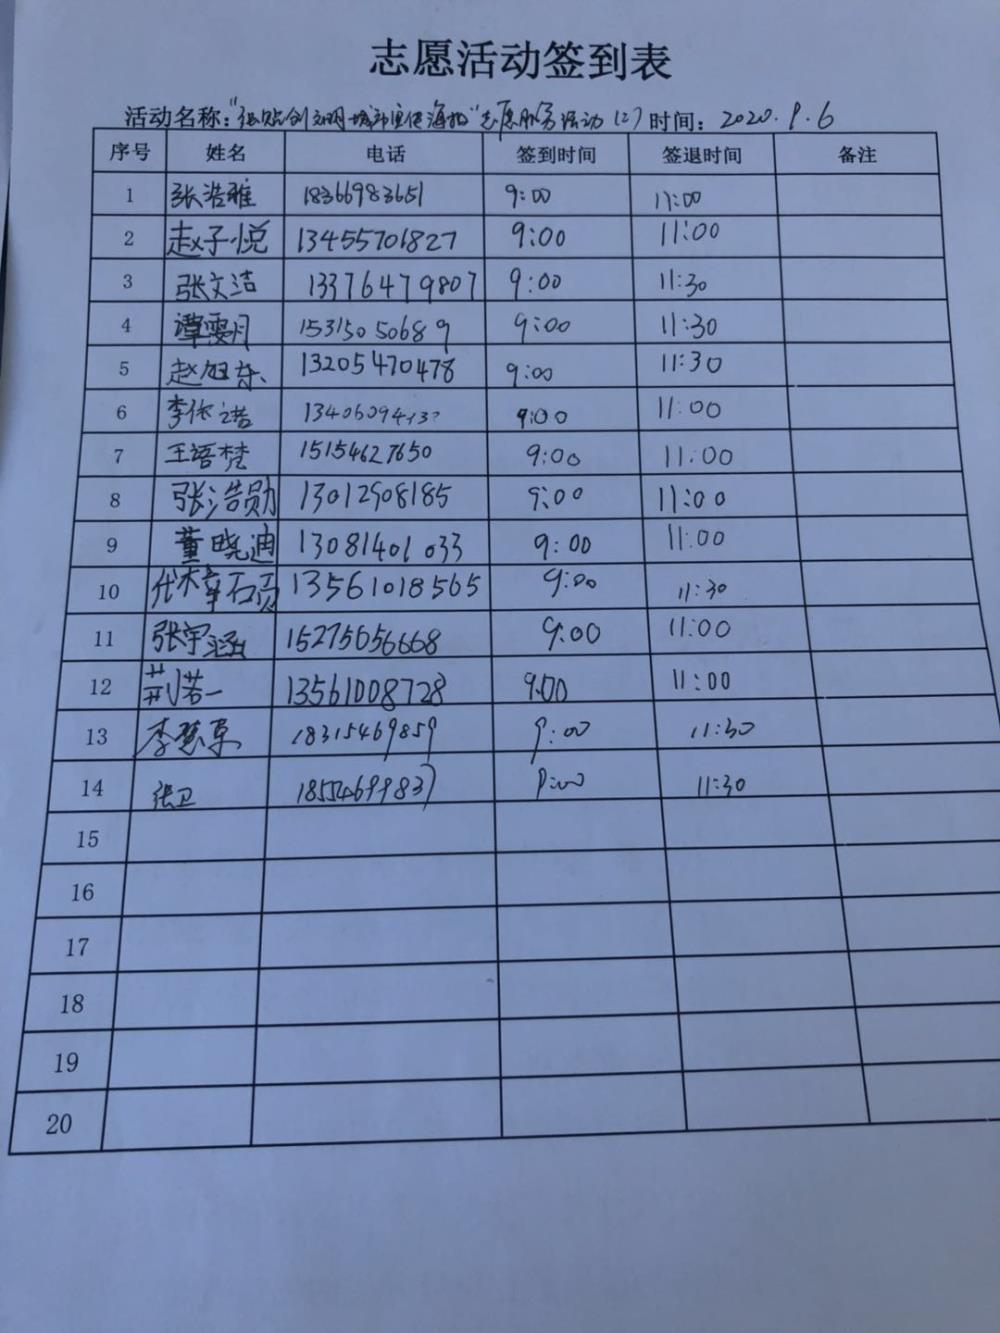 志愿活动签到表
活动名称："张贴创文明城市宣传海报"志愿服务活动（2）时间：2020.9.6
序号 姓名 电话 签到时间 签退时间 备注
1 张浩雅 18366983651 9:00 11:00
2 赵子悦 13455701827 9:00 11:00
3 张文洁 13376479807 9:00 11:30
4 谭雯月 15315050689 9:00 11:30
5 赵旭东 13205470478 9:00 11:30
6 李依诺 9:00 11:00
7 王语梵 15154627650 9:00 11:00
8 张浩勋 13012908185 9:00 11:00
9 董晓迪 13081401033 9:00 11:00
10 13561018565 9:00 11:30
11 张宇涵 15275656668 9:00 11:00
12 荆若一 13561008728 9:00 11:00
13 李慧 18315469859 9:00 11:30
14 张卫 18554699837 9:00 11:30
15
16
17
18
19
20